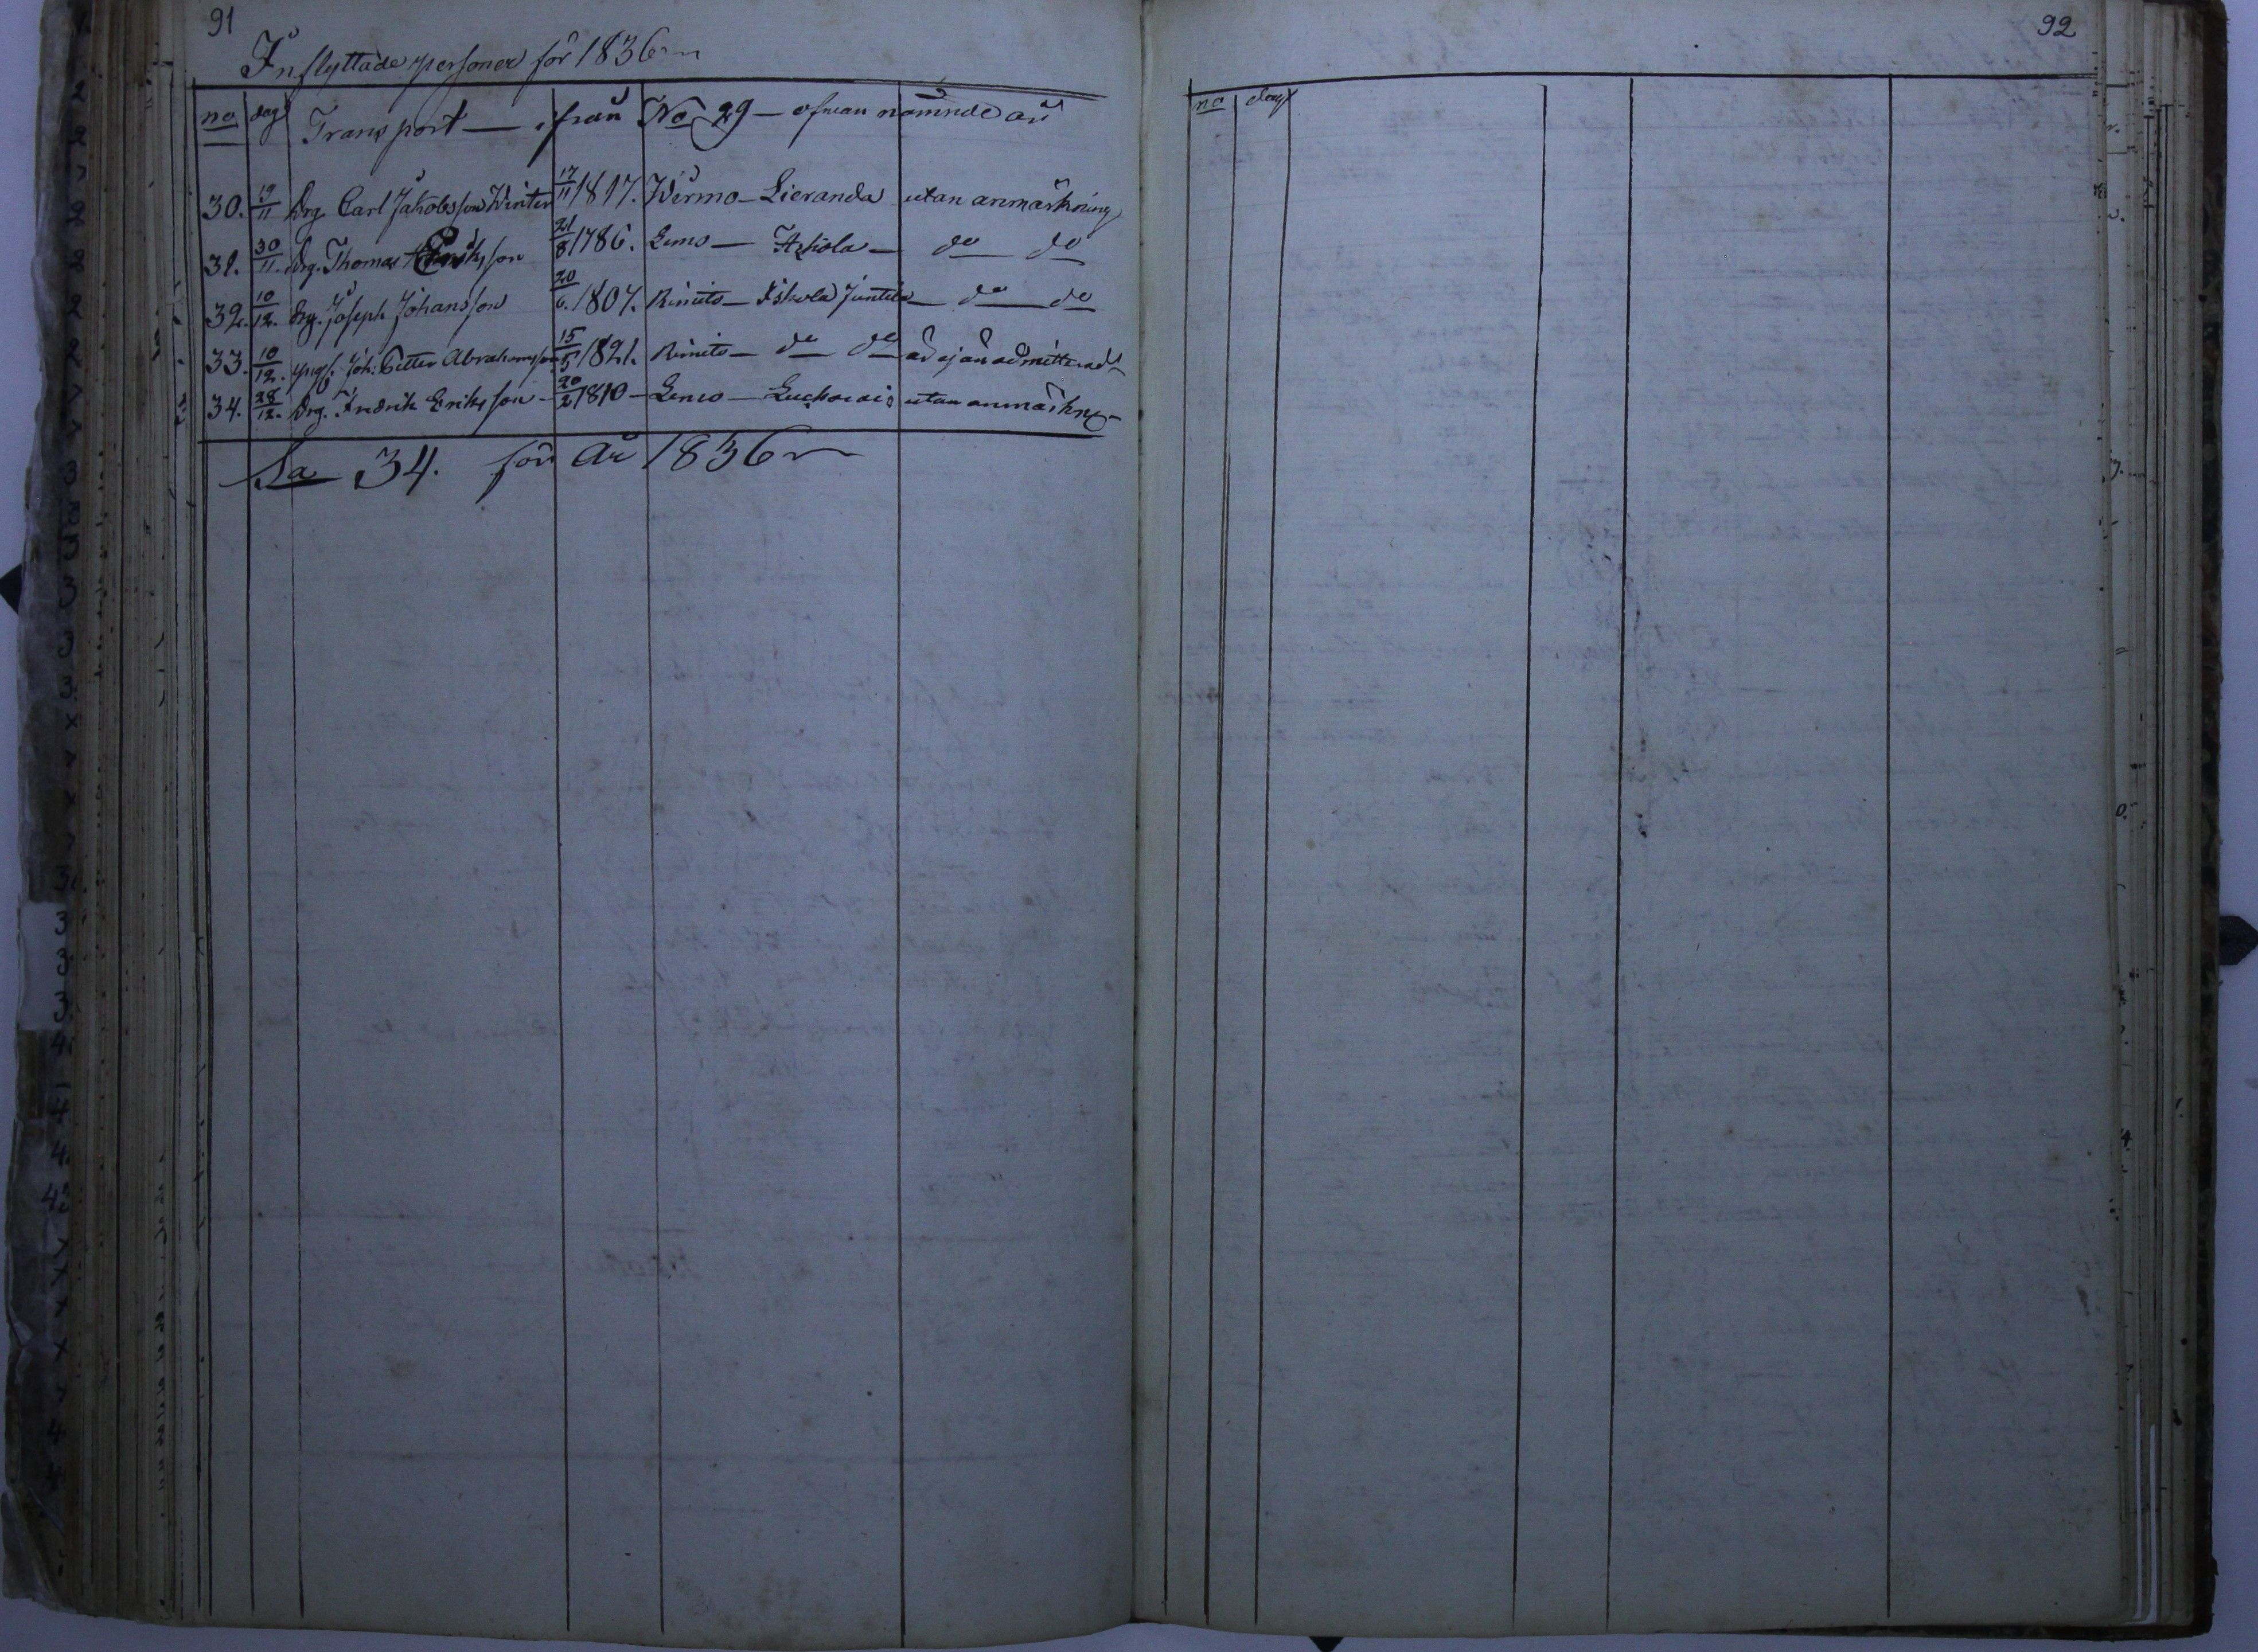 91
Inflyttade personer för 1836
no dag Transport — ifrån No 29 — ofvan nämnde år
30. 19/11 Drg. Carl Jakobsson Winter 17/11 1817. Wirmo — Lieranda utan anmärkning
31. 30/11. Drg. Thomas Eriksson 21/8 1786. Lemo — do do
32. 10/12. Drg. Joseph Johansson 20/6. 1807. Rimito — Iskola Juntila — do do
33. 10/12. yngl. Joh: Petter Abrahamsson 15/5 1821. Rimito — do do ej admitterad
34. 28/12. Drg. Fredrik Eriksson — 20/2 1810 — Lemo — utan anmärkng
Sa 34. för År 1836
92
no dag